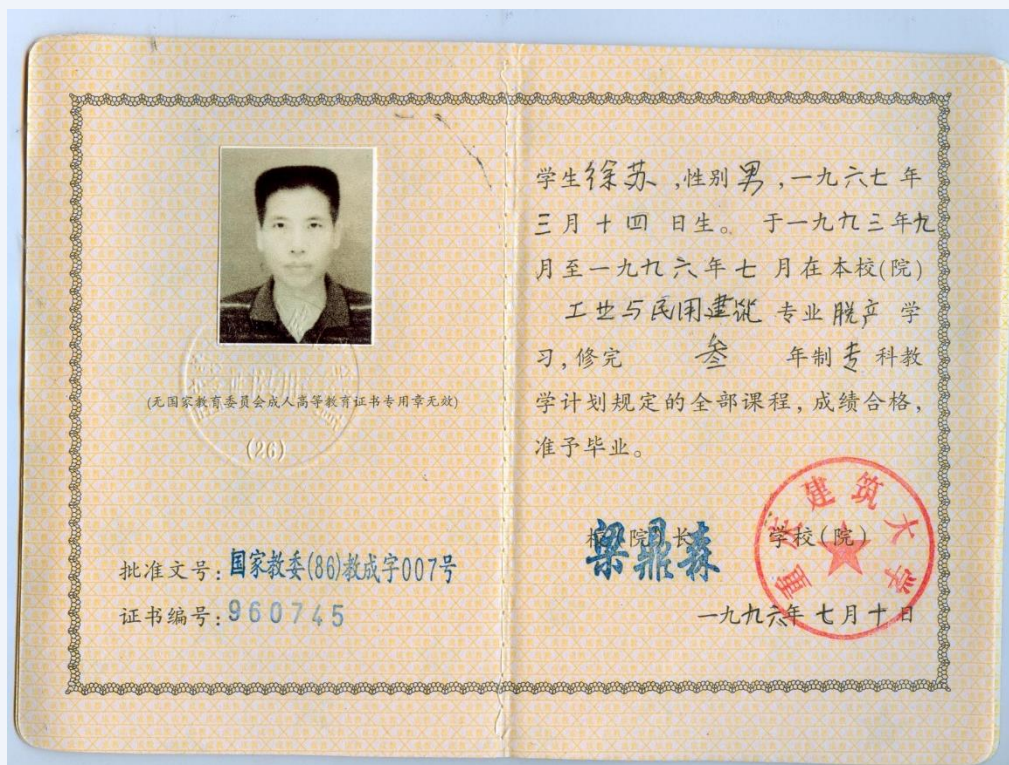 (无国家教育委员会成人高等教育证书专用章无效)
(26)
批准文号:国家教委(86)教成字007号
证书编号:960745
学生徐苏,性别男,一九六七年
三月十四日生。于一九九三年九
月至一九九六年七月在本校(院)
工业与民用建筑专业脱产学
习,修完叁年制专科教
学计划规定的全部课程,成绩合格,
准予毕业。
校(院)长 学校(院)
梁鼎森
重庆建筑大学
一九九六年七月十日